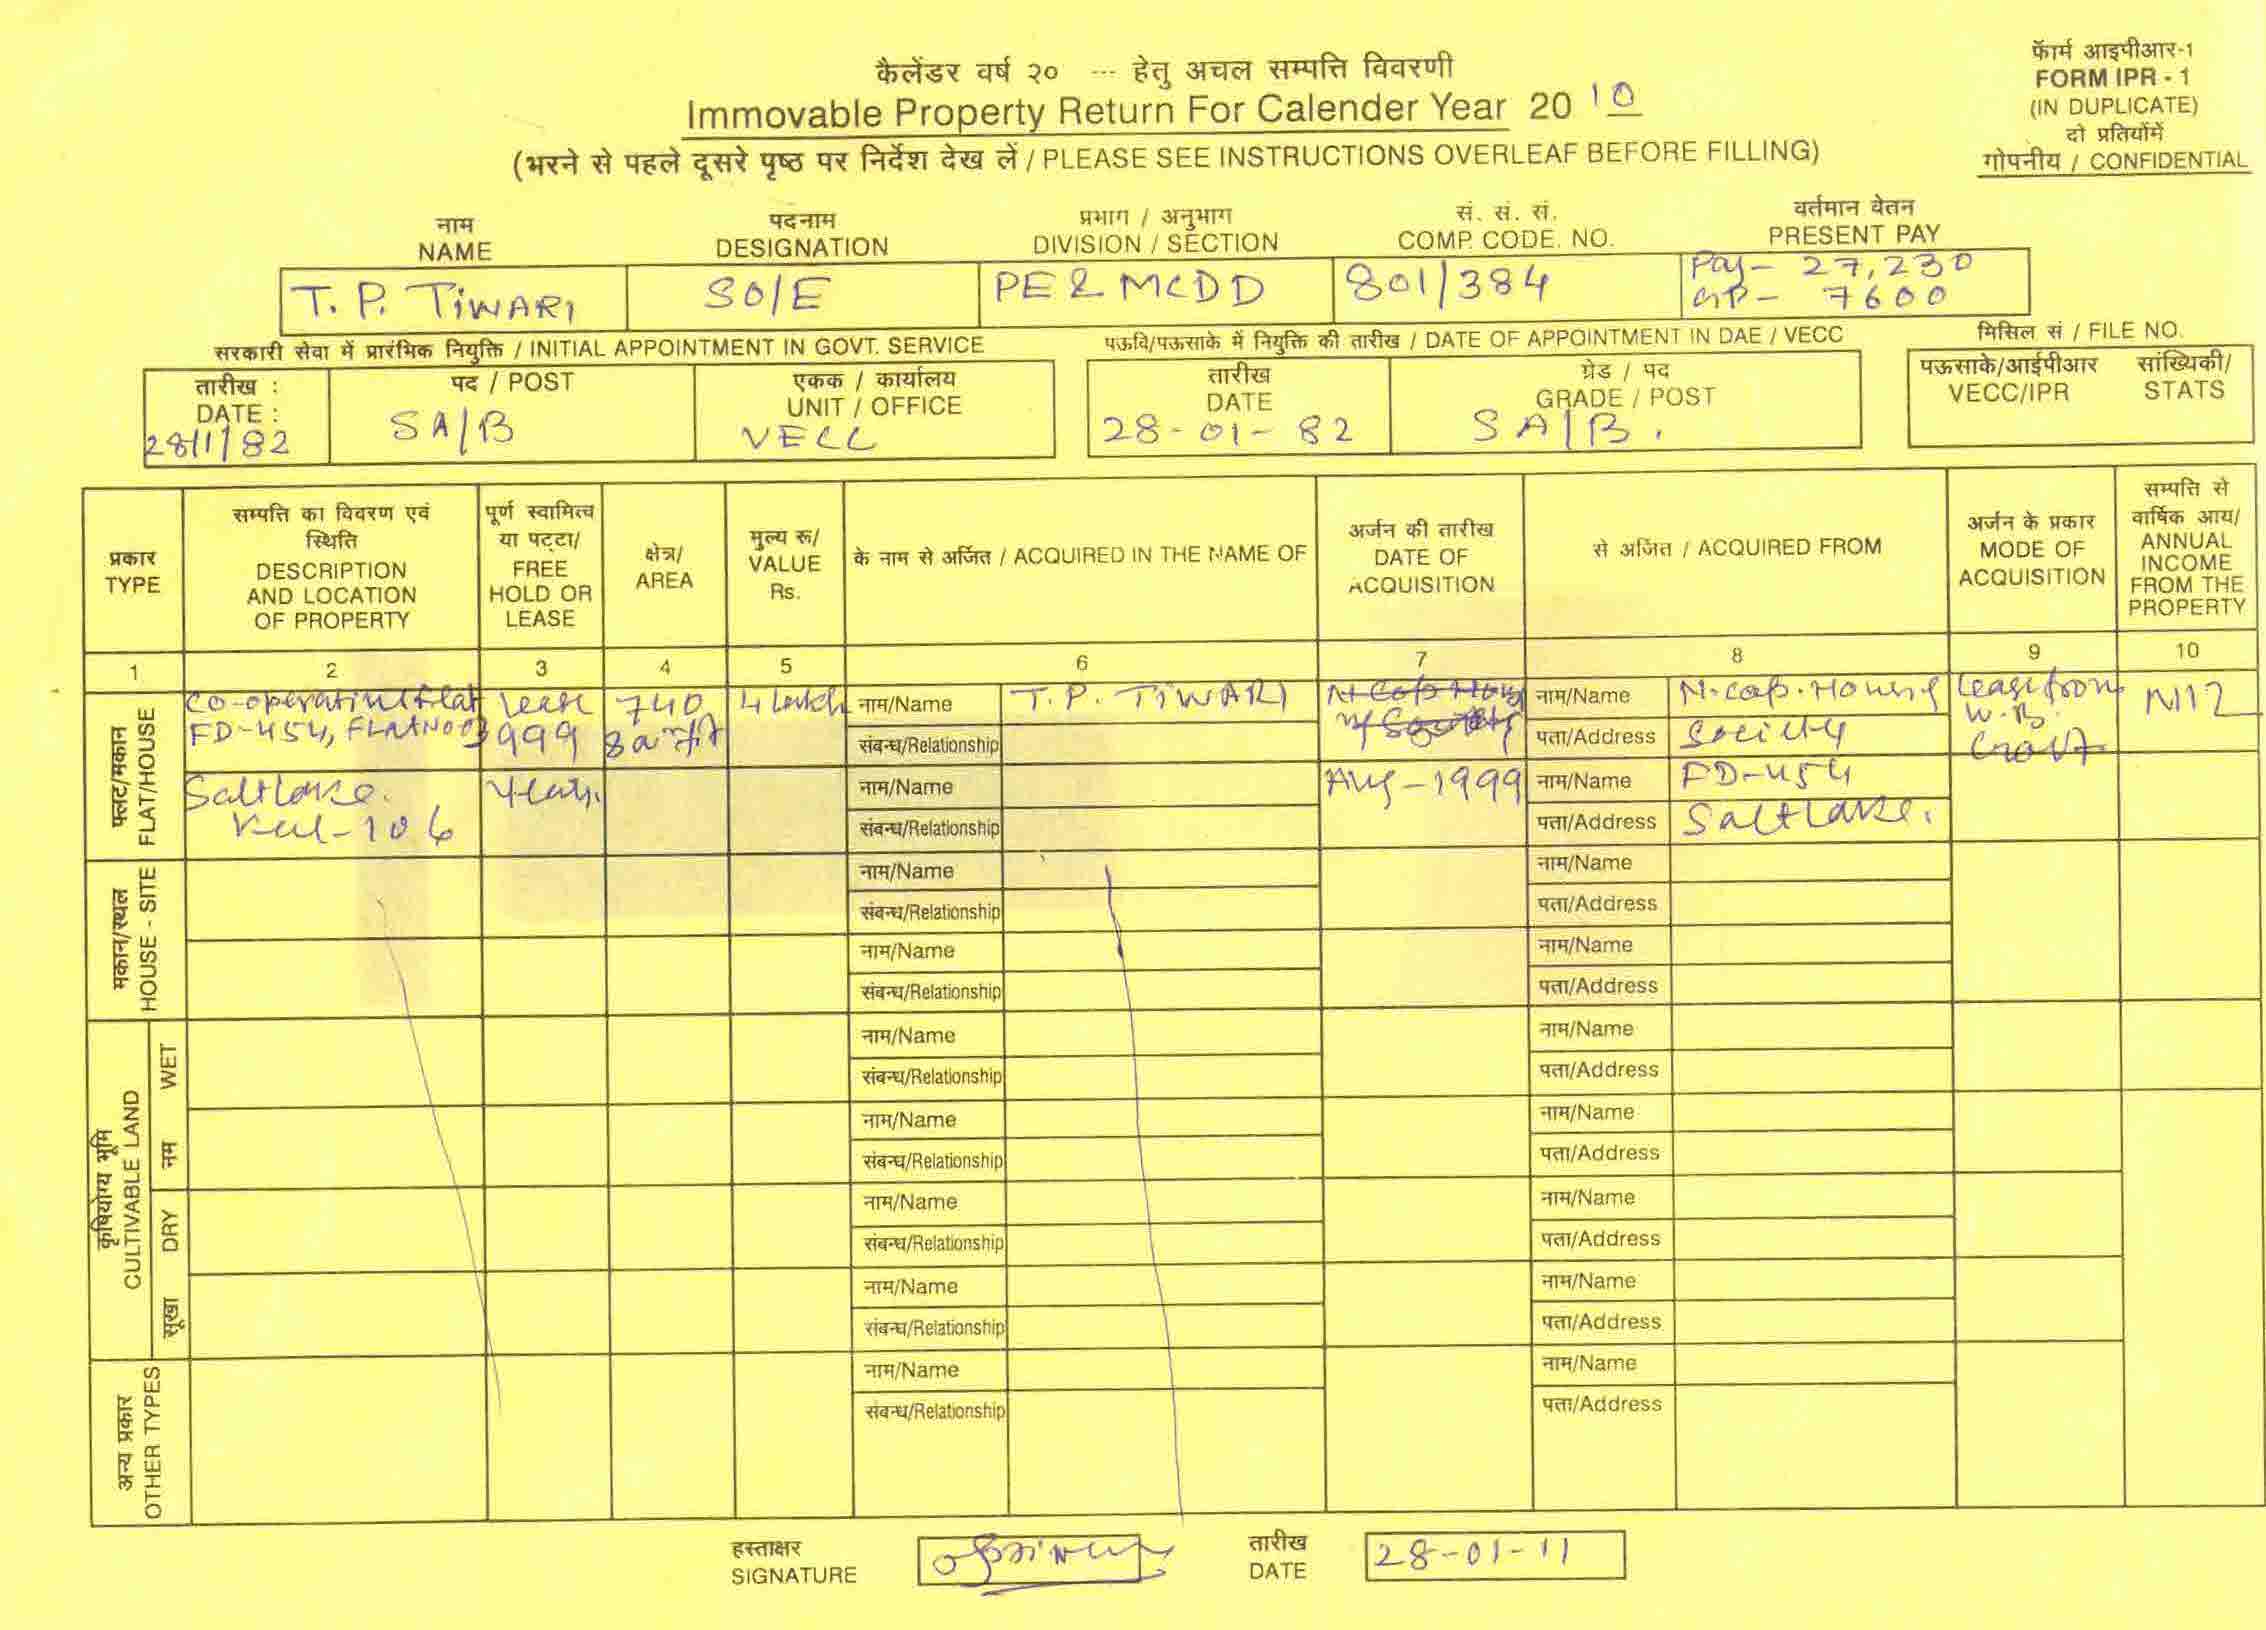 फॅार्म आइपीआर-१
FORM IPR - 1
(IN DUPLICATE)
दो प्रतियोंमें
गोपनीय / CONFIDENTIAL
कैलेंडर वर्ष २० --- हेतु अचल सम्पत्ति विवरणी
Immovable Property Return For Calender Year 20 10
(भरने से पहले दूसरे पृष्ठ पर निर्देश देख लें / PLEASE SEE INSTRUCTIONS OVERLEAF BEFORE FILLING)
नाम पदनाम प्रभाग / अनुभाग सं. सं. सं. वर्तमान वेतन
NAME DESIGNATION DIVISION / SECTION COMP. CODE. NO. PRESENT PAY
T. P. TIWARI SO/E PE & MCDD 801/384 Pay- 27,230
GP- 7600
सरकारी सेवा में प्रारंभिक नियुक्ति / INITIAL APPOINTMENT IN GOVT. SERVICE पऊवि/पऊसाके में नियुक्ति की तारीख / DATE OF APPOINTMENT IN DAE / VECC मिसिल सं / FILE NO.
तारीख : पद / POST एकक / कार्यालय तारीख ग्रेड / पद पऊसाके/आईपीआर सांख्यिकी/
DATE : UNIT / OFFICE DATE GRADE / POST VECC/IPR STATS
28/1/82 SA/B VECC 28-01-82 SA/B.
प्रकार
TYPE
सम्पत्ति का विवरण एवं
स्थिति
DESCRIPTION
AND LOCATION
OF PROPERTY
पूर्ण स्वामित्व
या पट्टा/
FREE
HOLD OR
LEASE
क्षेत्र/
AREA
मुल्य रू/
VALUE
Rs.
के नाम से अर्जित / ACQUIRED IN THE NAME OF
अर्जन की तारीख
DATE OF
ACQUISITION
से अर्जित / ACQUIRED FROM
अर्जन के प्रकार
MODE OF
ACQUISITION
सम्पत्ति से
वार्षिक आय/
ANNUAL
INCOME
FROM THE
PROPERTY
1 2 3 4 5 6 7 8 9 10
फ्लट/मकान
FLAT/HOUSE
Co-operative flat Lease 740 4 Lakh नाम/Name T. P. TIWARI नाम/Name N. Cap. Housing Lease from Nil
FD-454, FLAT NO 999 संबन्ध/Relationship पता/Address Society W.B.
Govt
Saltlake. Years. नाम/Name Aug-1999 नाम/Name FD-454
Kal-106 संबन्ध/Relationship पता/Address Saltlake.
मकान/स्थल
HOUSE - SITE
नाम/Name नाम/Name
संबन्ध/Relationship पता/Address
नाम/Name नाम/Name
संबन्ध/Relationship पता/Address
कृषियोग्य भूमि
CULTIVABLE LAND
नम WET
नाम/Name नाम/Name
संबन्ध/Relationship पता/Address
नाम/Name नाम/Name
संबन्ध/Relationship पता/Address
सूखा DRY
नाम/Name नाम/Name
संबन्ध/Relationship पता/Address
नाम/Name नाम/Name
संबन्ध/Relationship पता/Address
अन्य प्रकार
OTHER TYPES
नाम/Name नाम/Name
संबन्ध/Relationship पता/Address
हस्ताक्षर तारीख
SIGNATURE DATE 28-01-11